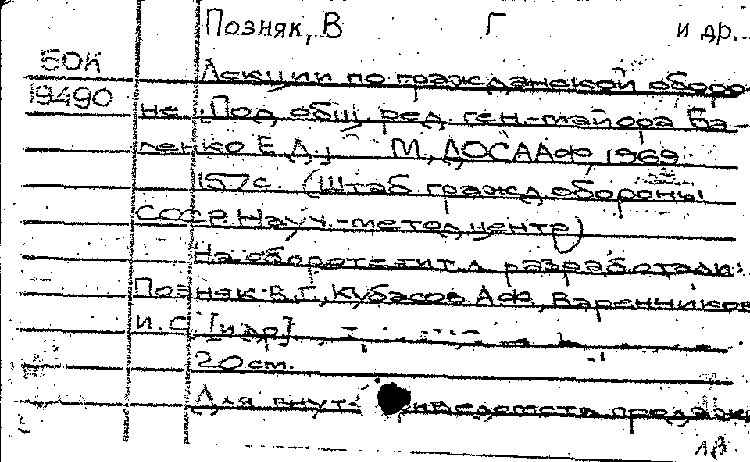 Позняк, В Г и др.
БОК Лекции по гражданской оборо-
19490 не. Под общ. ред. ген-майора Ба-
ленко Е.Д., М, ДОСААФ, 1969
157с. (Штаб гражд. обороны
СССР. Науч.-метод. центр)
На обороте тит. л. разработали:
Позняк В.Г., Кубасов А.Ф, Варенников
И.С. [и др]
20 см.
Для внутриведомств. продажи